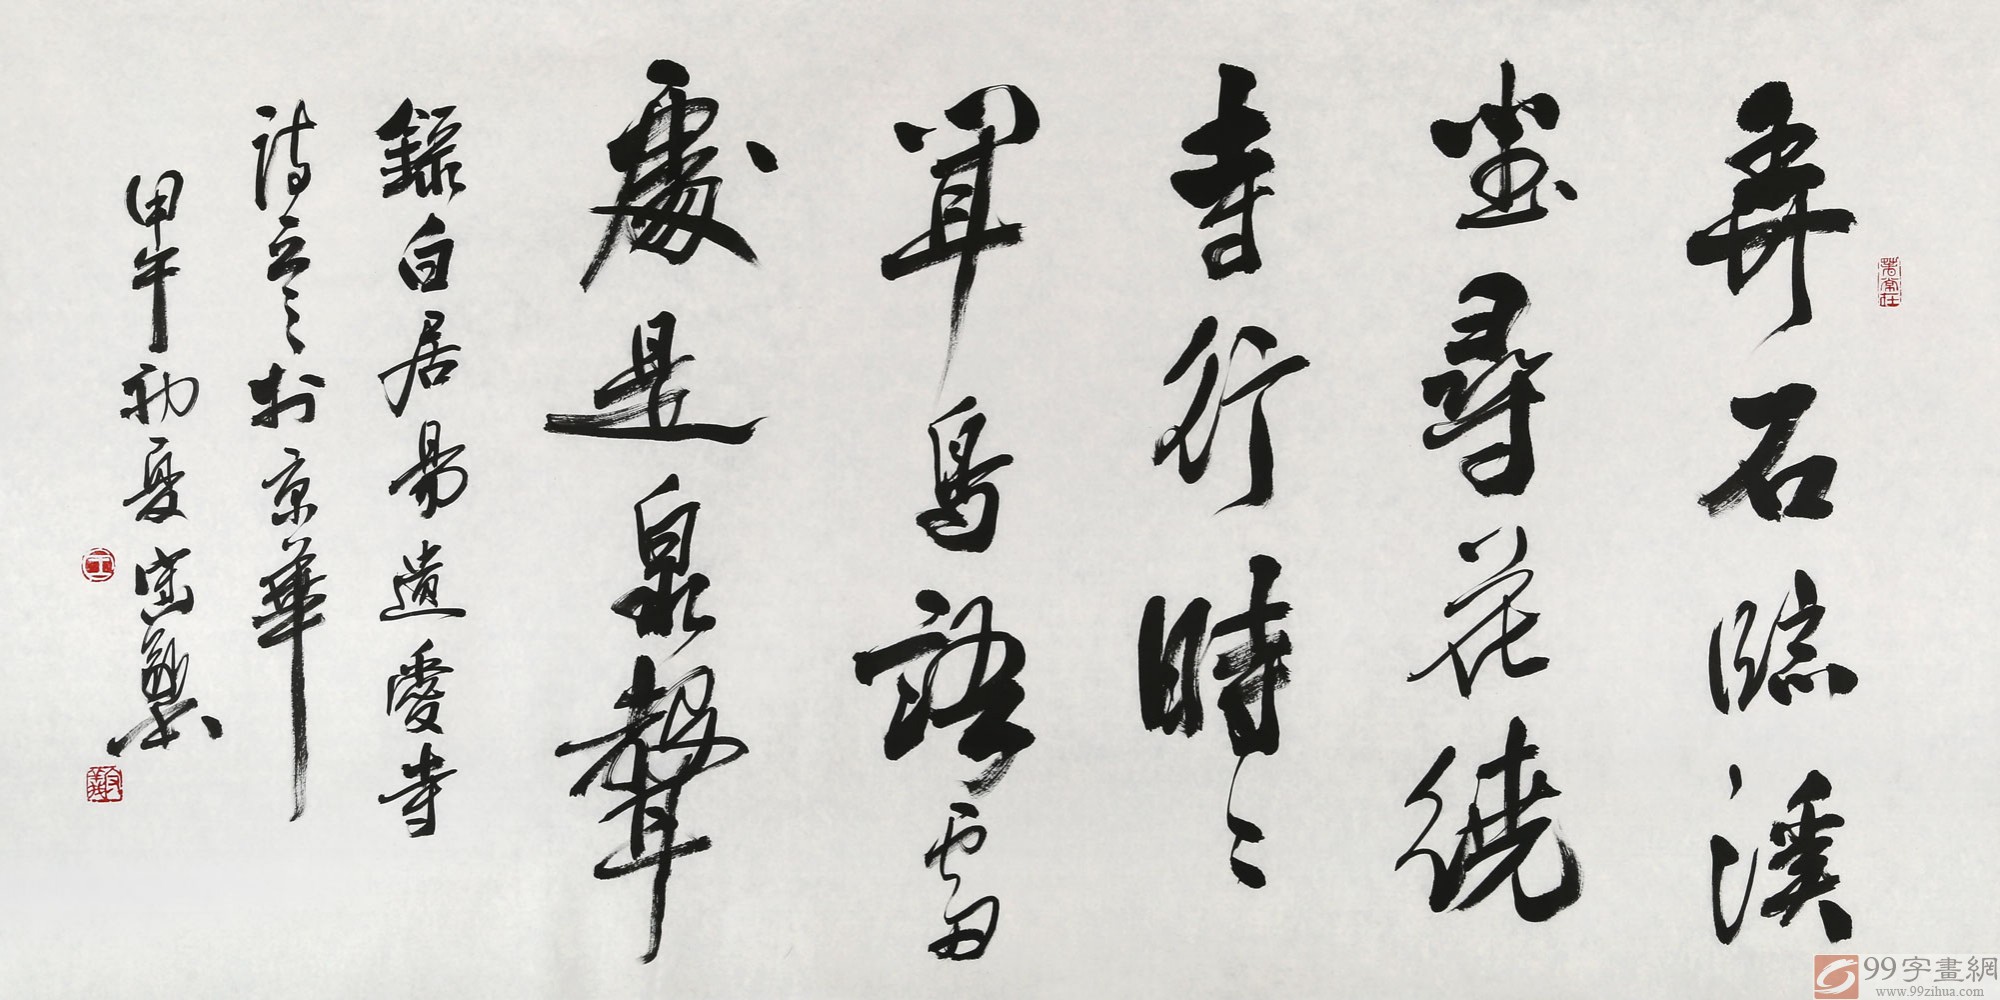 弄石臨溪
坐尋花繞
寺行時〻
聞鳥語處
處是泉聲
錄白居易遺愛寺
詩於京華
甲午初夏
99字畫網
www.99zihua.com